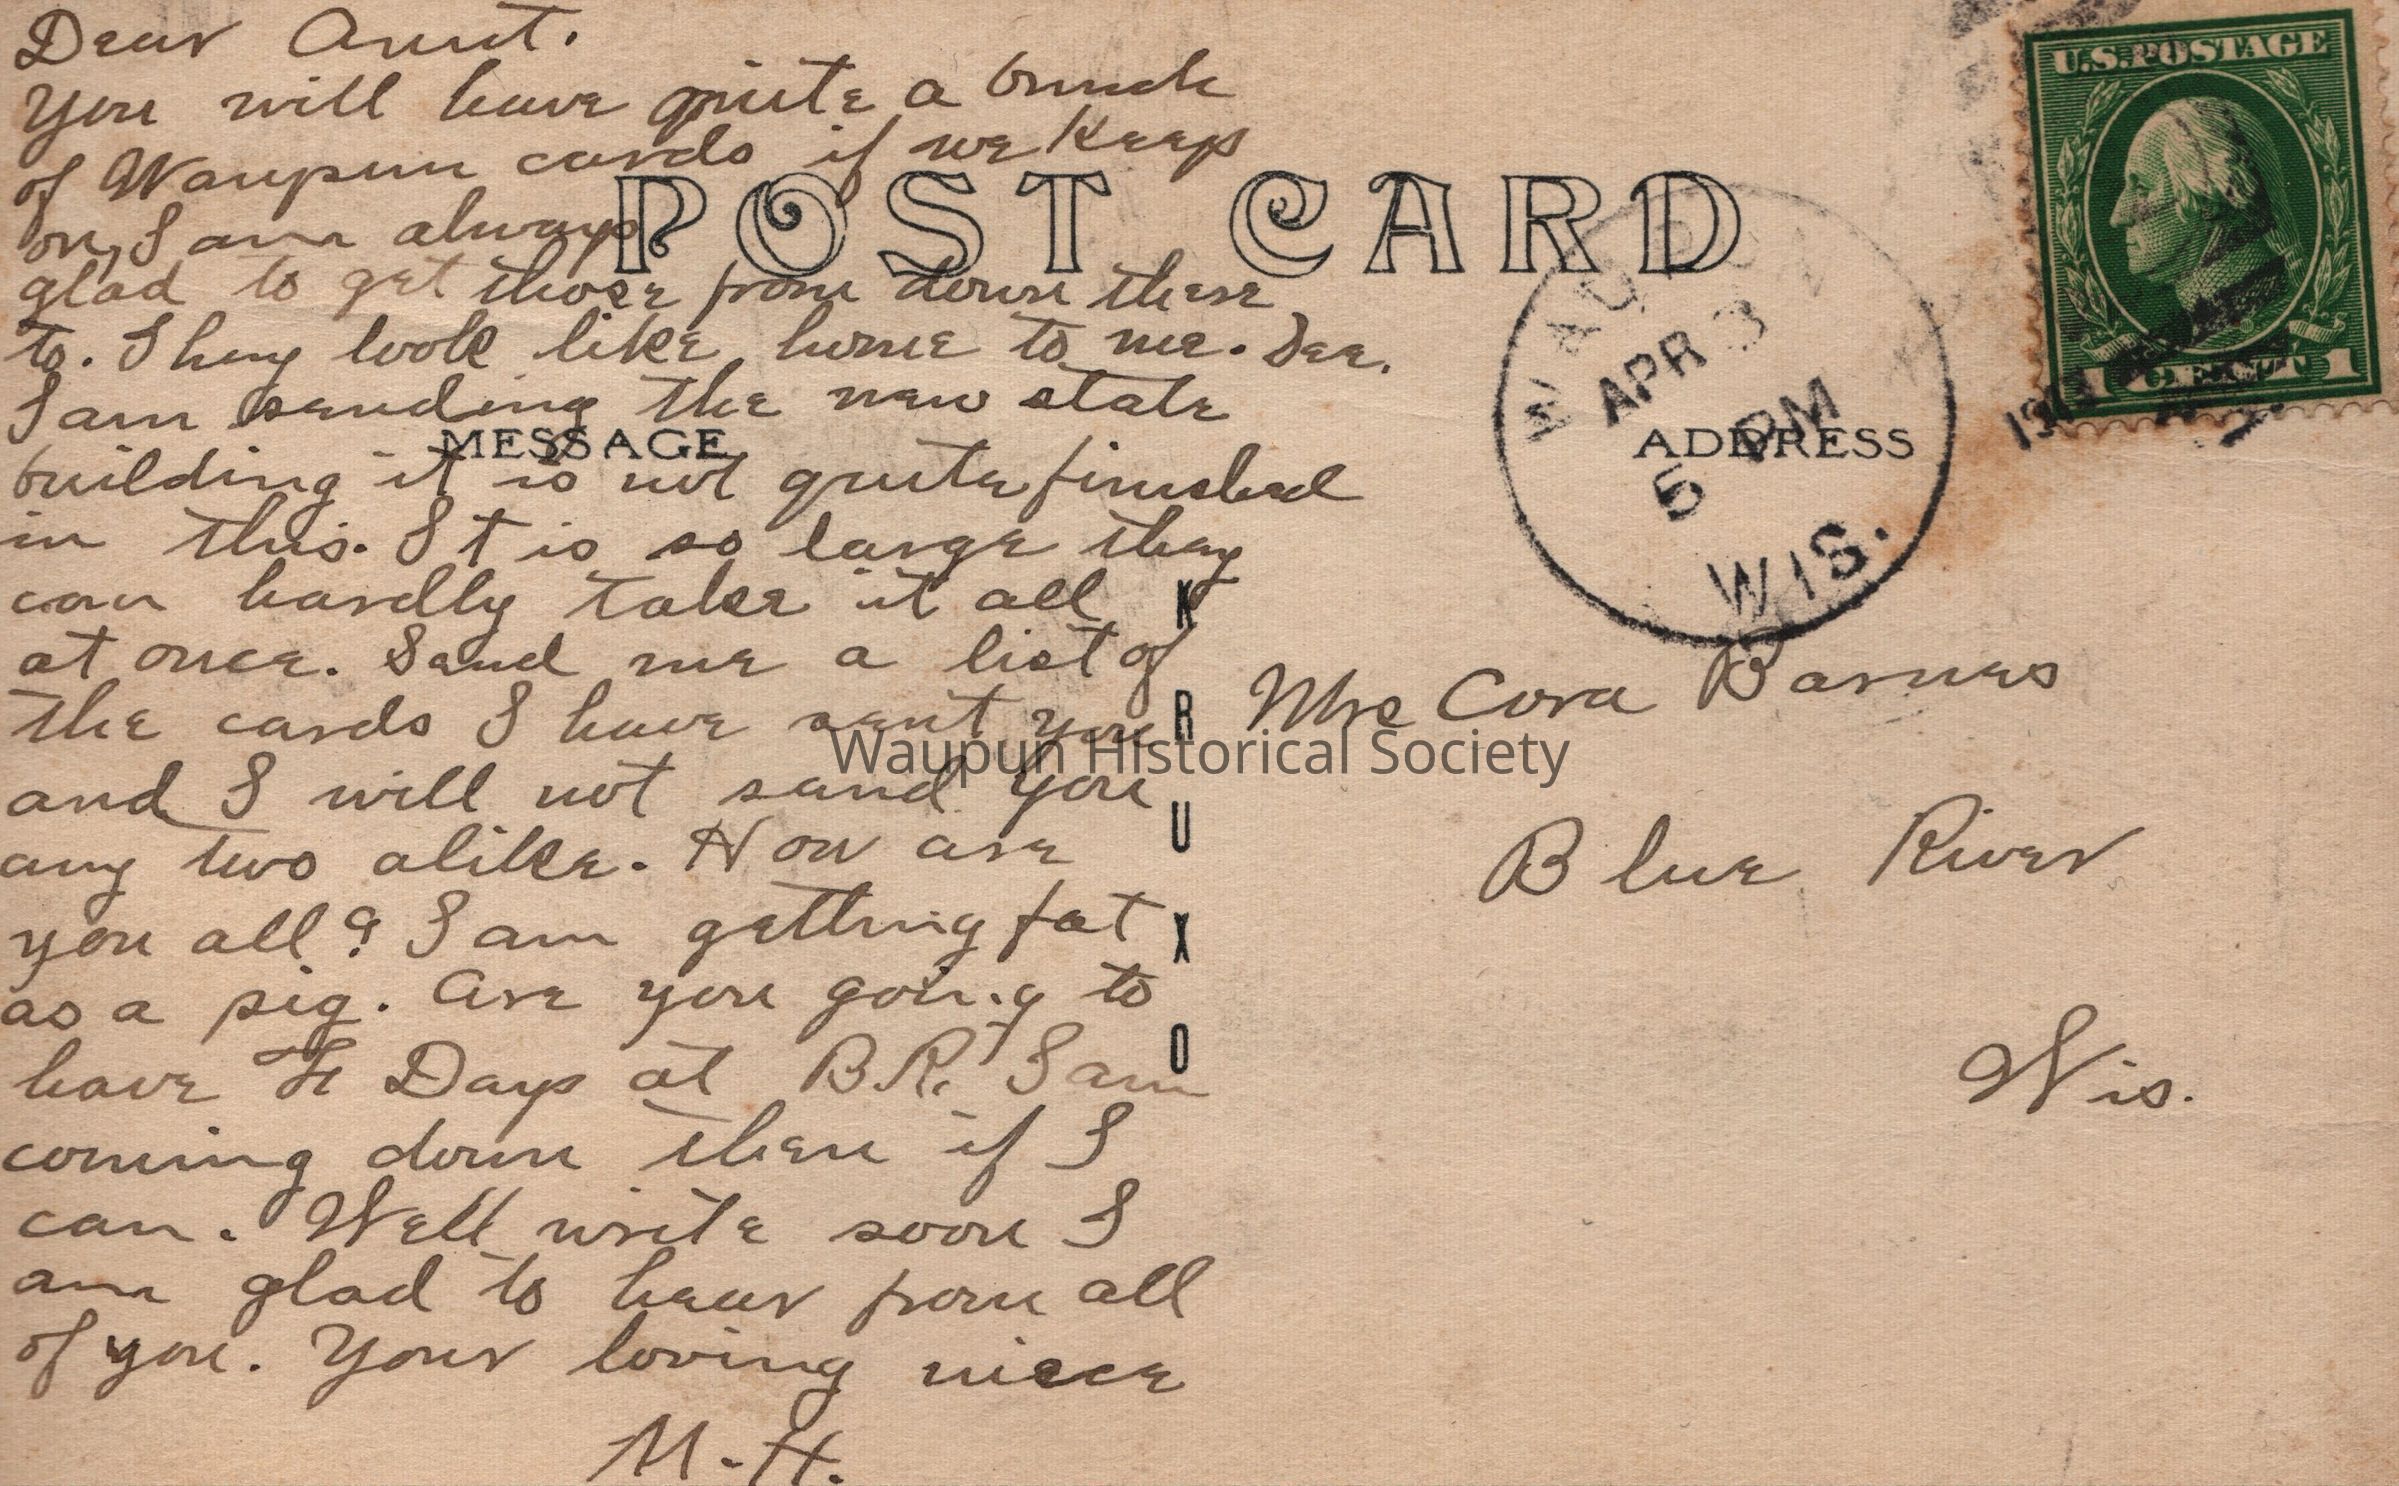 Dear Aunt.
You will have quite a bunch
of Waupun cards if we keep
on, I am always
glad to get those from down there
to. They look like home to me. See.
I am sending the new state
building it is not quite finished
in this. It is so large they
can hardly take it all
at once. Send me a list of
the cards I have sent you
and I will not send you
any two alike. How are
you all? I am getting fat
as a pig. Are you going to
have Days at B.R. I am
coming down then if I
can. Well write soon I
am glad to hear from all
of you. Your loving niece
M.H.
POST CARD
MESSAGE
ADDRESS
KRUXO
U.S. POSTAGE
1 CENT 1
APR 3
5 PM
WIS.
Mrs Cora Barnes
Blue River
Wis.
Waupun Historical Society